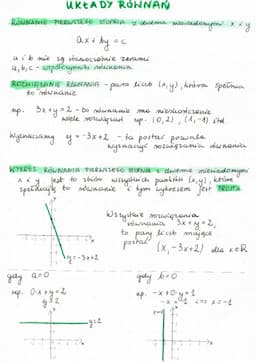 UKŁADY RÓWNAŃ
RÓWNANIE PIERWSZEGO STOPNIA z dwiema niewiadomymi x i y
ax + by = c
a i b nie są równocześnie zerami
a, b, c - współczynniki równania
ROZWIĄZANIE RÓWNANIA - para liczb (x, y), która spełnia
to równanie
np. 3x + y = 2 - to równanie ma nieskończenie
wiele rozwiązań np. (0, 2), (1, -1) itd
Wyznaczamy y = -3x + 2 - ta postać pozwala
wyznaczyć rozwiązania równania
WYKRES RÓWNANIA PIERWSZEGO STOPNIA z dwiema niewiadomymi
x i y jest to zbiór wszystkich punktów (x, y), które
spełniają to równanie i tym wykresem jest PROSTA
Wszystkie rozwiązania
równania 3x + y = 2,
to pary liczb mające
postać (x, -3x+2) dla x∈R
y = -3x+2
gdy a = 0
gdy b = 0
np. 0·x + y = 2
y = 2
np. -x + 0·y = 1
-x = 1 <=> x = -1
y = 2